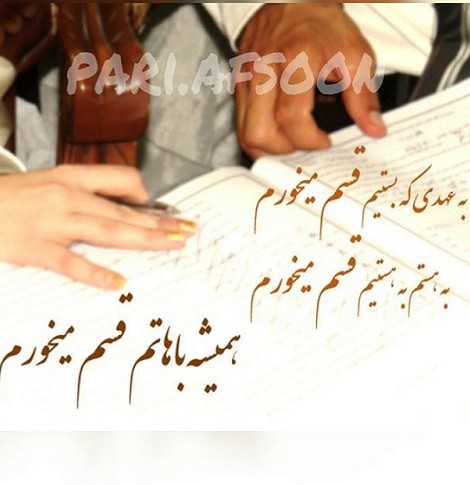 PARI.AFSOON
به عهدی که بستیم قسم میخورم
به هستم به هستیم قسم میخورم
همیشه باهاتم قسم میخورم